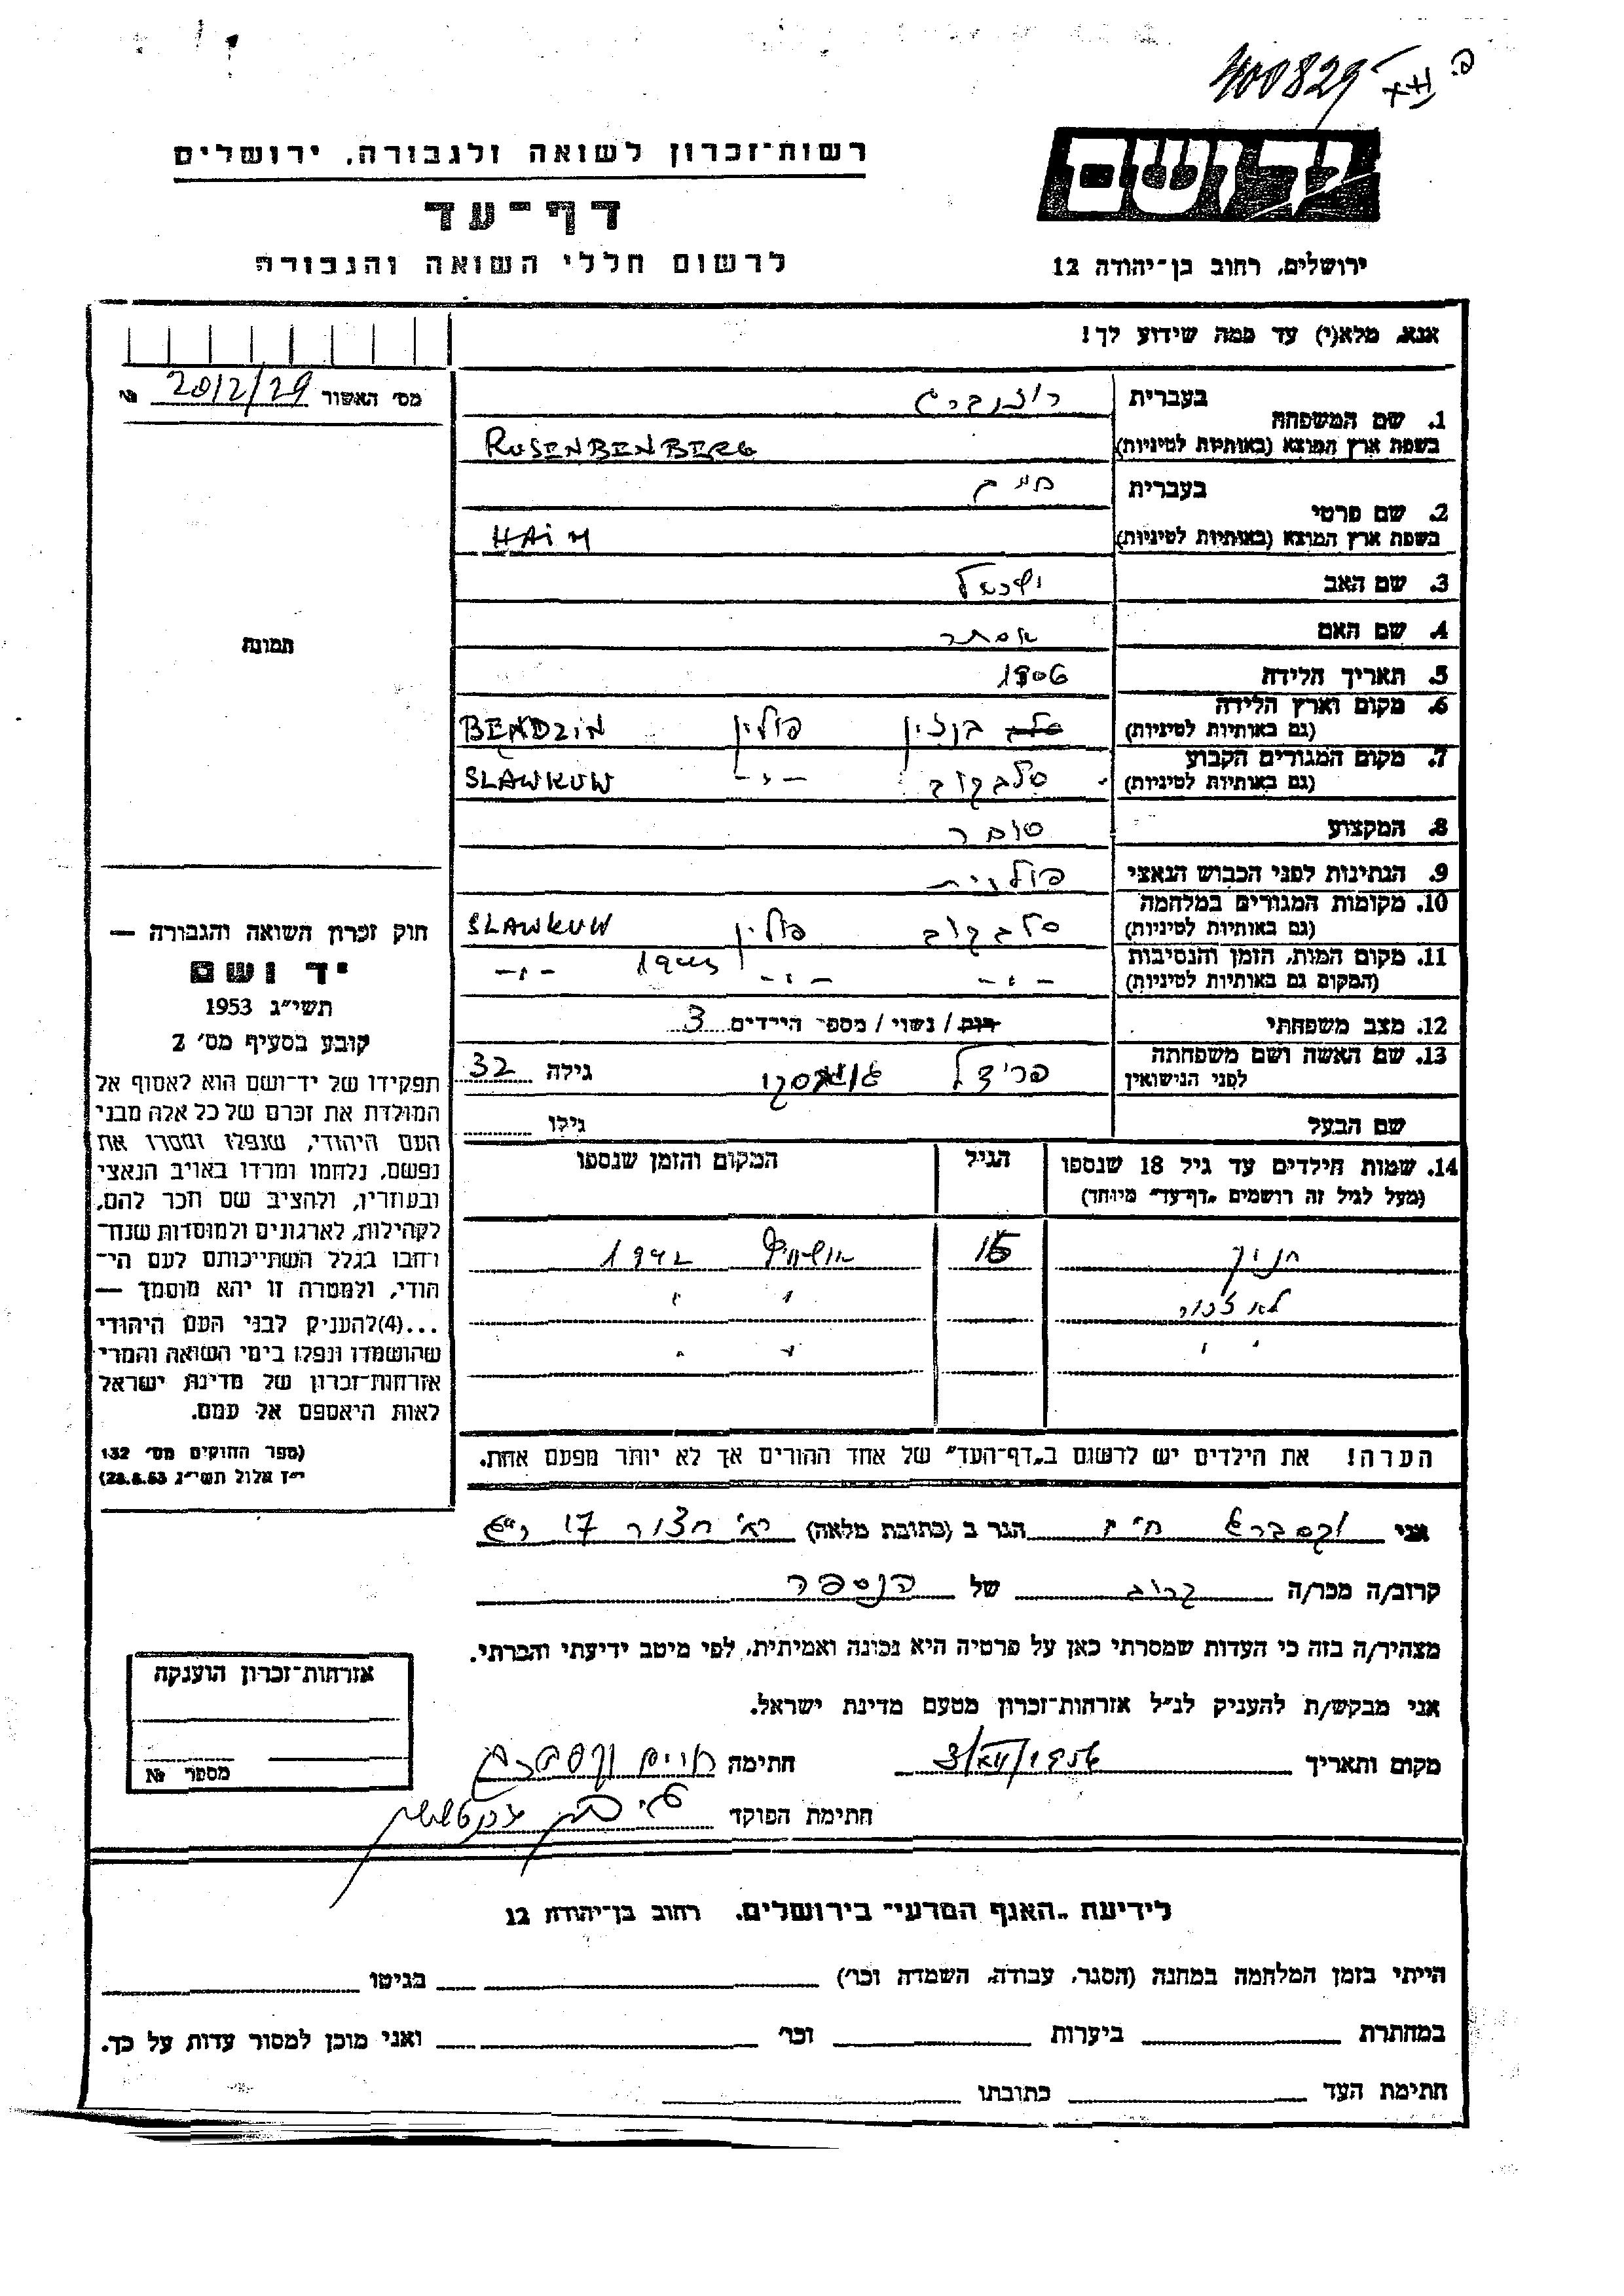 400829
יד ושם
רשות־זכרון לשואה ולגבורה, ירושלים
דף־עד
לרשום חללי השואה והגבורה
ירושלים, רחוב בן־יהודה 12
אנא, מלא(י) עד כמה שידוע לך!
מס׳ האשור 2012/29 №
1. שם המשפחה בעברית רוזנברג
בשפת ארץ המוצא (באותיות לטיניות) ROSENBENBERG
2. שם פרטי בעברית חיים
בשפת ארץ המוצא (באותיות לטיניות) HAIM
3. שם האב ישראל
4. שם האם אסתר
5. תאריך הלידה 1906
6. מקום וארץ הלידה
(גם באותיות לטיניות) בנדזין פולין BENDZIN
7. מקום המגורים הקבוע
(גם באותיות לטיניות) סלבקוב -״- SLAWKUW
8. המקצוע סוחר
9. הנתינות לפני הכבוש הנאצי פולנית
10. מקומות המגורים במלחמה
(גם באותיות לטיניות) סלבקוב פולין SLAWKUW
11. מקום המות, הזמן והנסיבות
(המקום גם באותיות לטיניות) -״- -״- 1943 -״-
12. מצב משפחתי רווק / נשוי / מספר הילדים 3
13. שם האשה ושם משפחתה
לפני הנישואין פריידל גילה 32
שם הבעל גילו
14. שמות הילדים עד גיל 18 שנספו הגיל המקום והזמן שנספו
(מעל לגיל זה רושמים „דף־עד” מיוחד)
חנוך 15 אושוויץ 1942
לא זכור ״ ״
״ ״ ״ ״
הערה! את הילדים יש לרשום ב„דף־העד” של אחד ההורים אך לא יותר מפעם אחת.
תמונה
חוק זכרון השואה והגבורה —
יד ושם
תשי״ג 1953
קובע בסעיף מס׳ 2
תפקידו של יד־ושם הוא לאסוף אל
המולדת את זכרם של כל אלה מבני
העם היהודי, שנפלו ומסרו את
נפשם, נלחמו ומרדו באויב הנאצי
ובעוזריו, ולהציב שם וזכר להם,
לקהילות, לארגונים ולמוסדות שנח־
רבו בגלל השתייכותם לעם הי־
הודי, ולמטרה זו יהא מוסמך —
...(4)להעניק לבני העם היהודי
שהושמדו ונפלו בימי השואה והמרי
אזרחות־זכרון של מדינת ישראל
לאות היאספם אל עמם.
(ספר החוקים מס׳ 132
י״ז אלול תשי״ג 28.8.53)
אני וקסברג חיים הגר ב (כתובת מלאה) חצור 17
קרוב/ה מכר/ה קרוב של הנספה
מצהיר/ה בזה כי העדות שמסרתי כאן על פרטיה היא נכונה ואמיתית, לפי מיטב ידיעתי והכרתי.
אני מבקש/ת להעניק לנ״ל אזרחות־זכרון מטעם מדינת ישראל.
מקום ותאריך חתימה חיים וקסברג
חתימת הפוקד
אזרחות־זכרון הוענקה
מספר №
לידיעת „האגף המדעי” בירושלים, רחוב בן־יהודה 12
הייתי בזמן המלחמה במחנה (הסגר, עבודה, השמדה וכו׳) בגיטו
במחתרת ביערות וכו׳ ואני מוכן למסור עדות על כך.
חתימת העד כתובתו